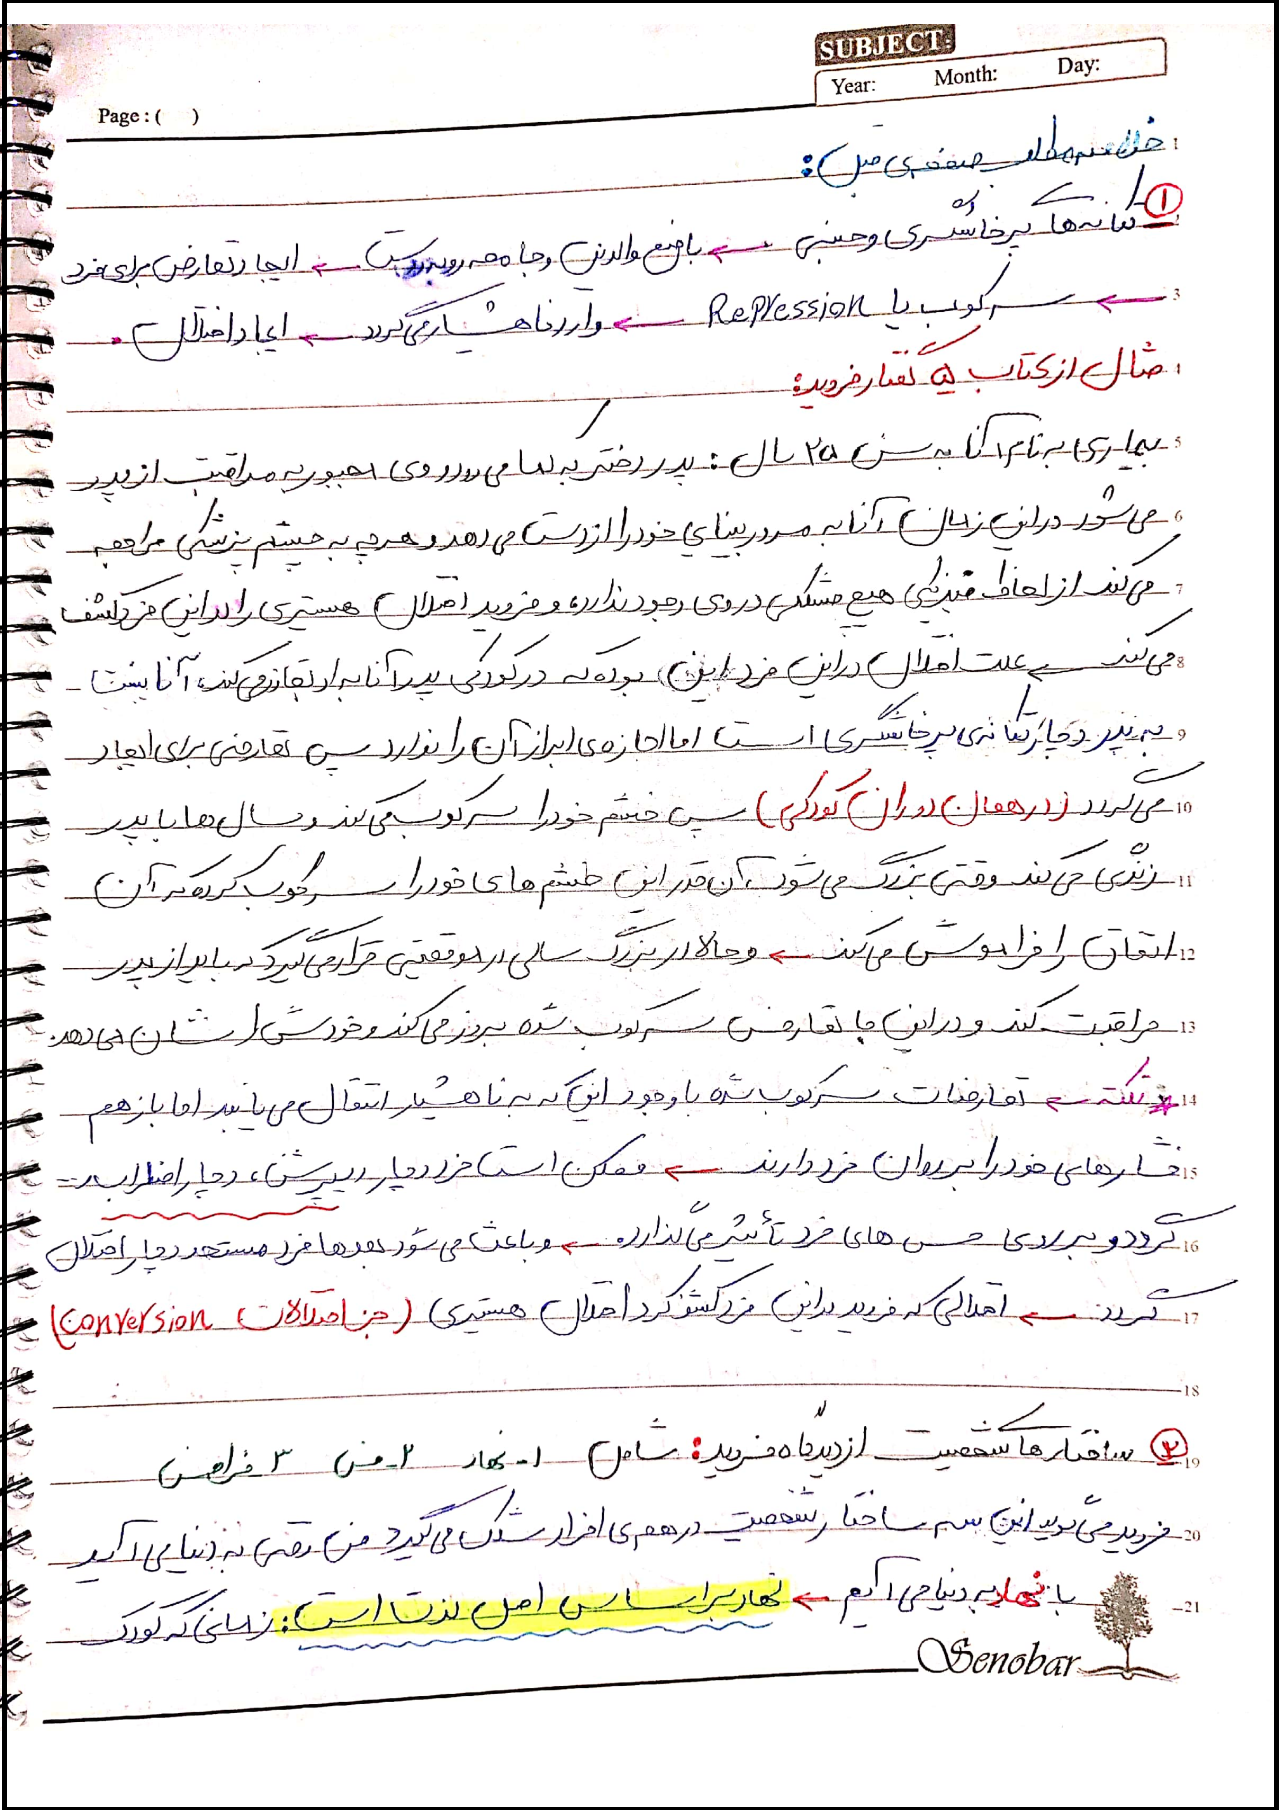 SUBJECT:
Year: Month: Day:
Page : ( )
1 خلاصه مطالب صفحه‌ی قبل:
① تکانه‌های پرخاشگری و جنسی ← با منع والدین و جامعه روبروست ← ایجاد تعارض برای فرد
3 ← سرکوب یا Repression ← وارد ناهشیار می‌گردد ← ایجاد اختلال.
مثال از کتاب ۵ گفتار فروید:
5 بیماری به نام آنا به سن ۲۵ سال: پدر دختر به کما می‌رود و وی مجبور به مراقبت از پدر
6 می‌شود در این زمان آنا به مرور بینایی خود را از دست می‌دهد و هرچه به چشم پزشکی مراجعه
7 می‌کند از لحاظ فیزیکی هیچ مشکلی در وی وجود ندارد، و فروید اختلال هیستری را در این فرد کشف
8 می‌کند ← علت اختلال در این فرد این بوده که در کودکی پدر آنا به او تجاوز می‌کند، آنا نسبت
9 به پدر دچار تکانه‌ی پرخاشگری است اما اجازه‌ی ابراز آن را ندارد پس تعارضی برای ایجاد
10 می‌گردد (در همان دوران کودکی) پس خشم خود را سرکوب می‌کند و سال‌ها با پدر
11 زندگی می‌کند وقتی بزرگ می‌شود، آن قدر این خشم‌های خود را سرکوب کرده که آن
12 اتفاق را فراموش می‌کند ← و حالا در بزرگ سالی در موقعیتی قرار می‌گیرد که باید از پدر
13 مراقبت کند و در این جا تعارض سرکوب شده بروز می‌کند و خودش را نشان می‌دهد.
14 * نکته ← تعارضات سرکوب شده با وجود این که به ناهشیار انتقال می‌یابند اما باز هم
15 فشارهای خود را بر روان فرد دارند ← ممکن است فرد دچار دیپرشن، دچار اضطراب ...
16 گردد و بر روی حس‌های فرد تأثیر می‌گذارد ← و باعث می‌شود بعدها فرد مستعد دچار اختلال
17 گردد ← اختلالی که فروید در این فرد کشف کرد اختلال هیستری (جز اختلالات conversion)
18
19 ② ساختارهای شخصیت از دیدگاه فروید: شامل ۱- نهاد ۲- من ۳- فرامن
20 فروید می‌گوید این سه ساختار شخصیت در همه‌ی افراد شکل می‌گیرد من وقتی به دنیا می‌آید
21 با نهاد به دنیا می‌آیم ← نهاد بر اساس اصل لذت است: زمانی که کودک
Senobar